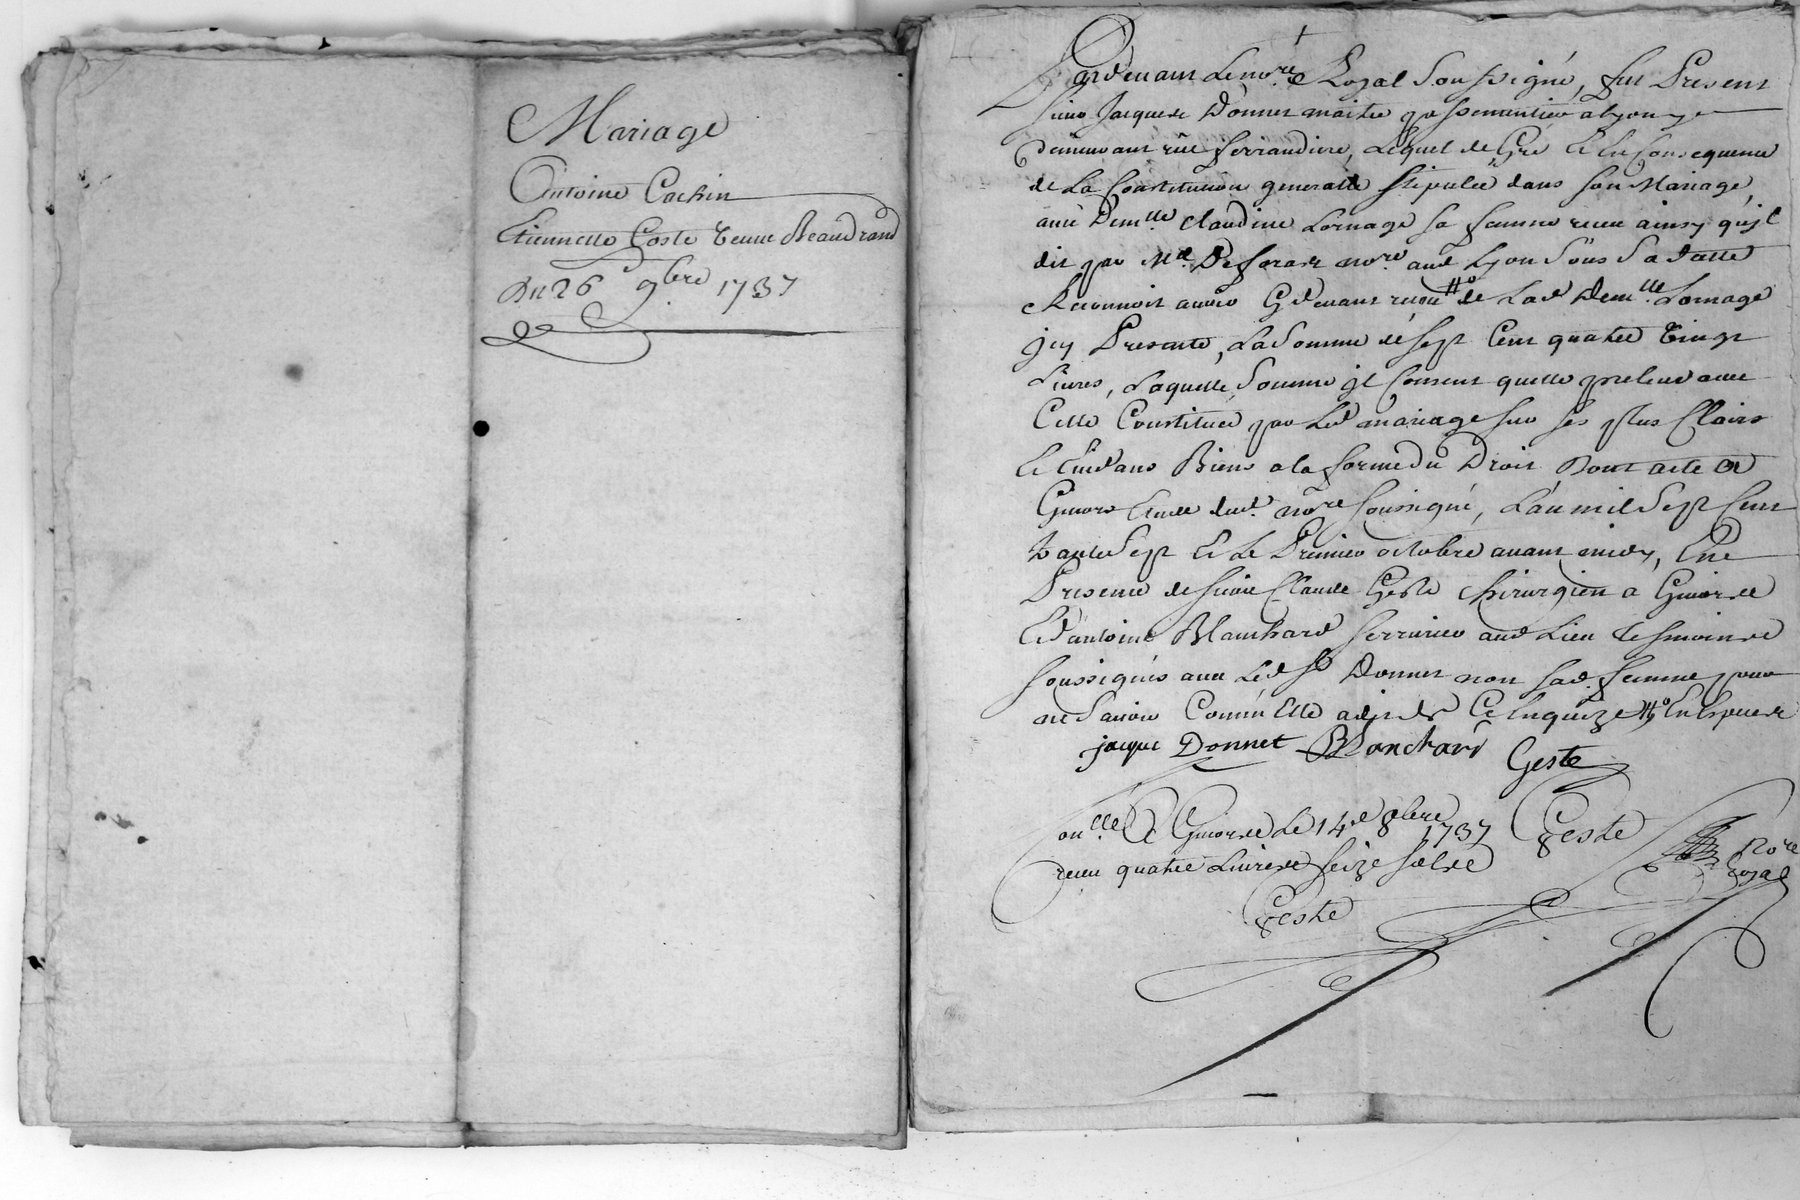 Mariage
Antoine Cochin
Etiennette Coste veuve Beaudrand
Du 26e 9bre 1737
Pardevant Le nore Royal Soussigné, fut Present
sieur Jacques Donnet maitre passementier a Lyon y
demeurant rüe ferrandiere, Lequel de Gré Et En Consequence
de La Constitution generalle stipulée dans son Mariage,
avec Demlle Claudine Lornage sa femme receu ainsy qu'jl
dit par Me nore aud Lyon Sous Sa datte
Reconnoit avoir Cy devant receu de Lad Demlle Lornage
jcy Presente, La Somme de sept Cent quatre vingt
Livres, Laquelle Somme jl Consent quelle preleve avec
Celle Constituée par Led mariage sur ses plus Clairs
Et Evidans Biens a la forme du Droit Dont acte a
Givors Etude dud. nore soussigné, L'an mil Sept Cent
trante Sept Et Le Premier octobre avant midy, En
Presence de sieur Claude Geste chirurgien a Givors
Et d'antoine Blanchard serrurier aud Lieu tesmoins
soussignés avec Led sr Donnet non sad. femme pour
ne Savoir Comm'Elle a dit de Ce Enquize
jacque Donnet Blanchard Geste
onlle a Givors Le 14e 8bre 1737 Geste
receu quatre Livres seize sols Nore
Royal
Geste